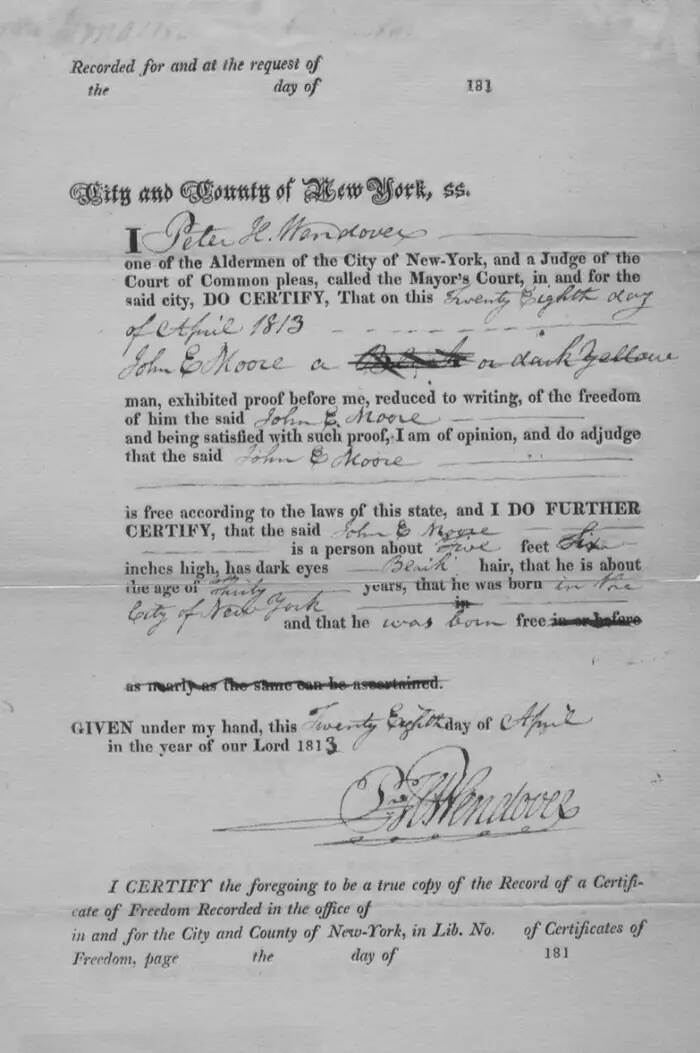 Recorded for and at the request of
the day of 181
City and County of New York, ss.
I Peter H. Wendover
one of the Aldermen of the City of New-York, and a Judge of the
Court of Common pleas, called the Mayor's Court, in and for the
said city, DO CERTIFY, That on this Twenty Eighth day
of April 1813
John E Moore a Black or dark Yellow
man, exhibited proof before me, reduced to writing, of the freedom
of him the said John E. Moore
and being satisfied with such proof, I am of opinion, and do adjudge
that the said John E Moore
is free according to the laws of this state, and I DO FURTHER
CERTIFY, that the said John E Moore
is a person about Five feet Six
inches high, has dark eyes hair, that he is about
the age of Thirty years, that he was born in the
in
City of New York
and that he was born free in or before
as nearly as the same can be ascertained.
GIVEN under my hand, this Twenty Eighth day of April
in the year of our Lord 1813
P. H. Wendover
I CERTIFY the foregoing to be a true copy of the Record of a Certifi-
cate of Freedom Recorded in the office of
in and for the City and County of New-York, in Lib. No. of Certificates of
Freedom, page the day of 181